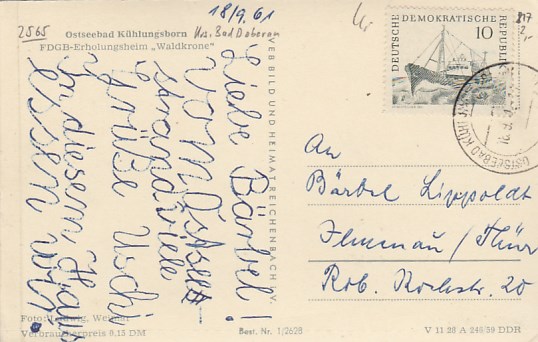 2565
18/9.61
Ostseebad Kühlungsborn
Krs. Bad Doberan
FDGB-Erholungsheim „Waldkrone"
Liebe Bärbel!
vom Ostsee-
strand viele
Grüße Uschi
In diesem Haus
essen wir.
VEB BILD UND HEIMAT REICHENBACH I. V.
DEUTSCHE DEMOKRATISCHE REPUBLIK
10
OSTSEEBAD KÜHLUNGSBORN
An
Bärbel Lippoldt
Ilmenau/Thür
Rob. Kochstr. 20
Foto: Ludwig, Weimar
Verbraucherpreis 0,15 DM
Best. Nr. 1/2628
V 11 28 A 249/59 DDR